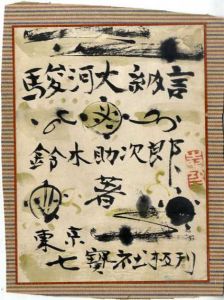 駿河大納言
鈴木助次郎
著
東京
七寳社梓刊